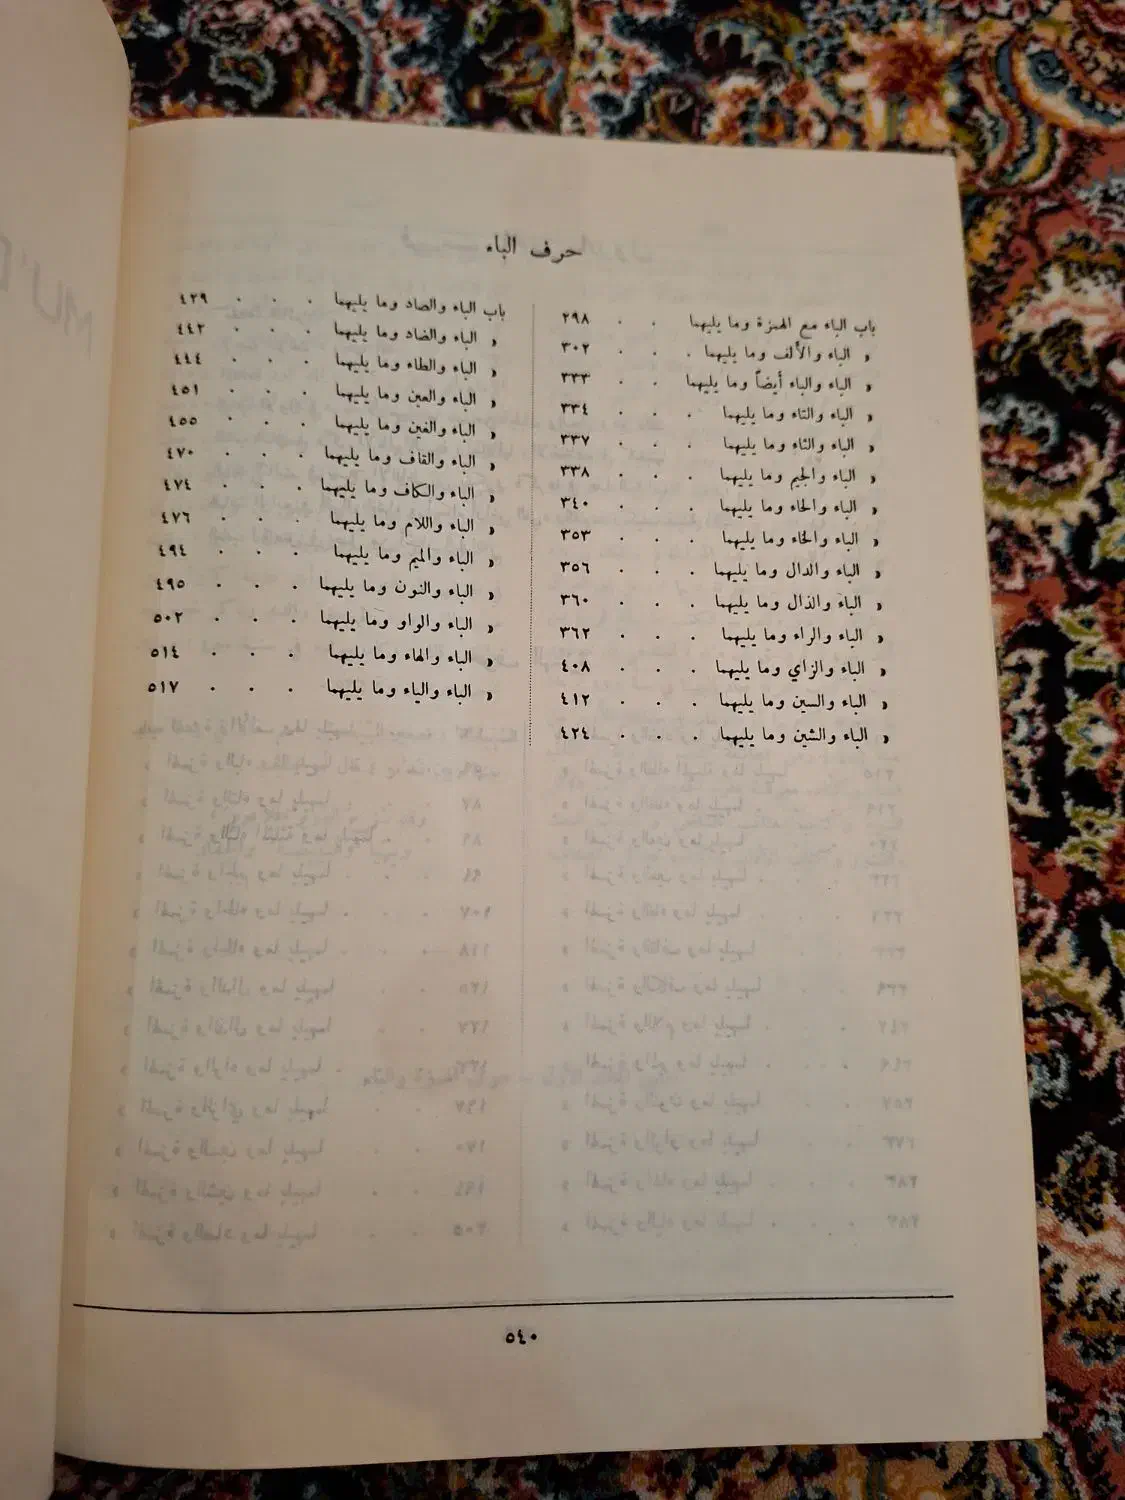 حرف الباء
باب الباء مع الهمزة وما يليهما . . ٢٩٨
« الباء والألف وما يليهما . . . ٣٠٢
« الباء والباء أيضاً وما يليهما . . ٣٣٣
« الباء والتاء وما يليهما . . . ٣٣٤
« الباء والثاء وما يليهما . . . ٣٣٧
« الباء والجيم وما يليهما . . . ٣٣٨
« الباء والحاء وما يليهما . . . ٣٤٠
« الباء والخاء وما يليهما . . . ٣٥٣
« الباء والدال وما يليهما . . . ٣٥٦
« الباء والذال وما يليهما . . . ٣٦٠
« الباء والراء وما يليهما . . . ٣٦٢
« الباء والزاي وما يليهما . . . ٤٠٨
« الباء والسين وما يليهما . . . ٤١٢
« الباء والشين وما يليهما . . . ٤٢٤
باب الباء والصاد وما يليهما . . . ٤٢٩
« الباء والضاد وما يليهما . . . ٤٤٢
« الباء والطاء وما يليهما . . . ٤٤٤
« الباء والعين وما يليهما . . . ٤٥١
« الباء والغين وما يليهما . . . ٤٥٥
« الباء والقاف وما يليهما . . . ٤٧٠
« الباء والكاف وما يليهما . . . ٤٧٤
« الباء واللام وما يليهما . . . ٤٧٦
« الباء والميم وما يليهما . . . ٤٩٤
« الباء والنون وما يليهما . . . ٤٩٥
« الباء والواو وما يليهما . . . ٥٠٢
« الباء والهاء وما يليهما . . . ٥١٤
« الباء والياء وما يليهما . . . ٥١٧
٥٤٠